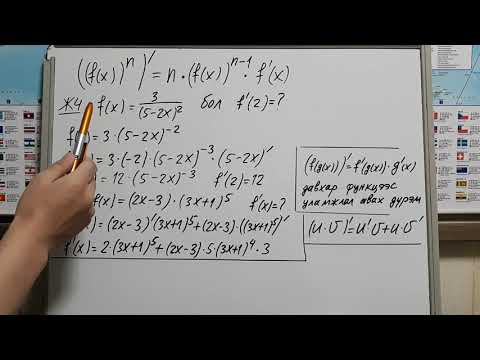 ((f(x))ⁿ)' = n·(f(x))ⁿ⁻¹·f'(x)
Ж4 f(x) = 3/(5-2x)² бол f'(2)=?
= 3·(5-2x)⁻²
= 3·(-2)·(5-2x)⁻³·(5-2x)'
= 12·(5-2x)⁻³ f'(2)=12
= (2x-3)·(3x+1)⁵ f'(x)=?
= (2x-3)'(3x+1)⁵+(2x-3)·((3x+1)⁵)'
f'(x) = 2·(3x+1)⁵+(2x-3)·5·(3x+1)⁴·3
(f(g(x)))'=f'(g(x))·g'(x)
давхар функцээс
уламжлал авах дүрэм
(u·v)'=u'v+u·v'